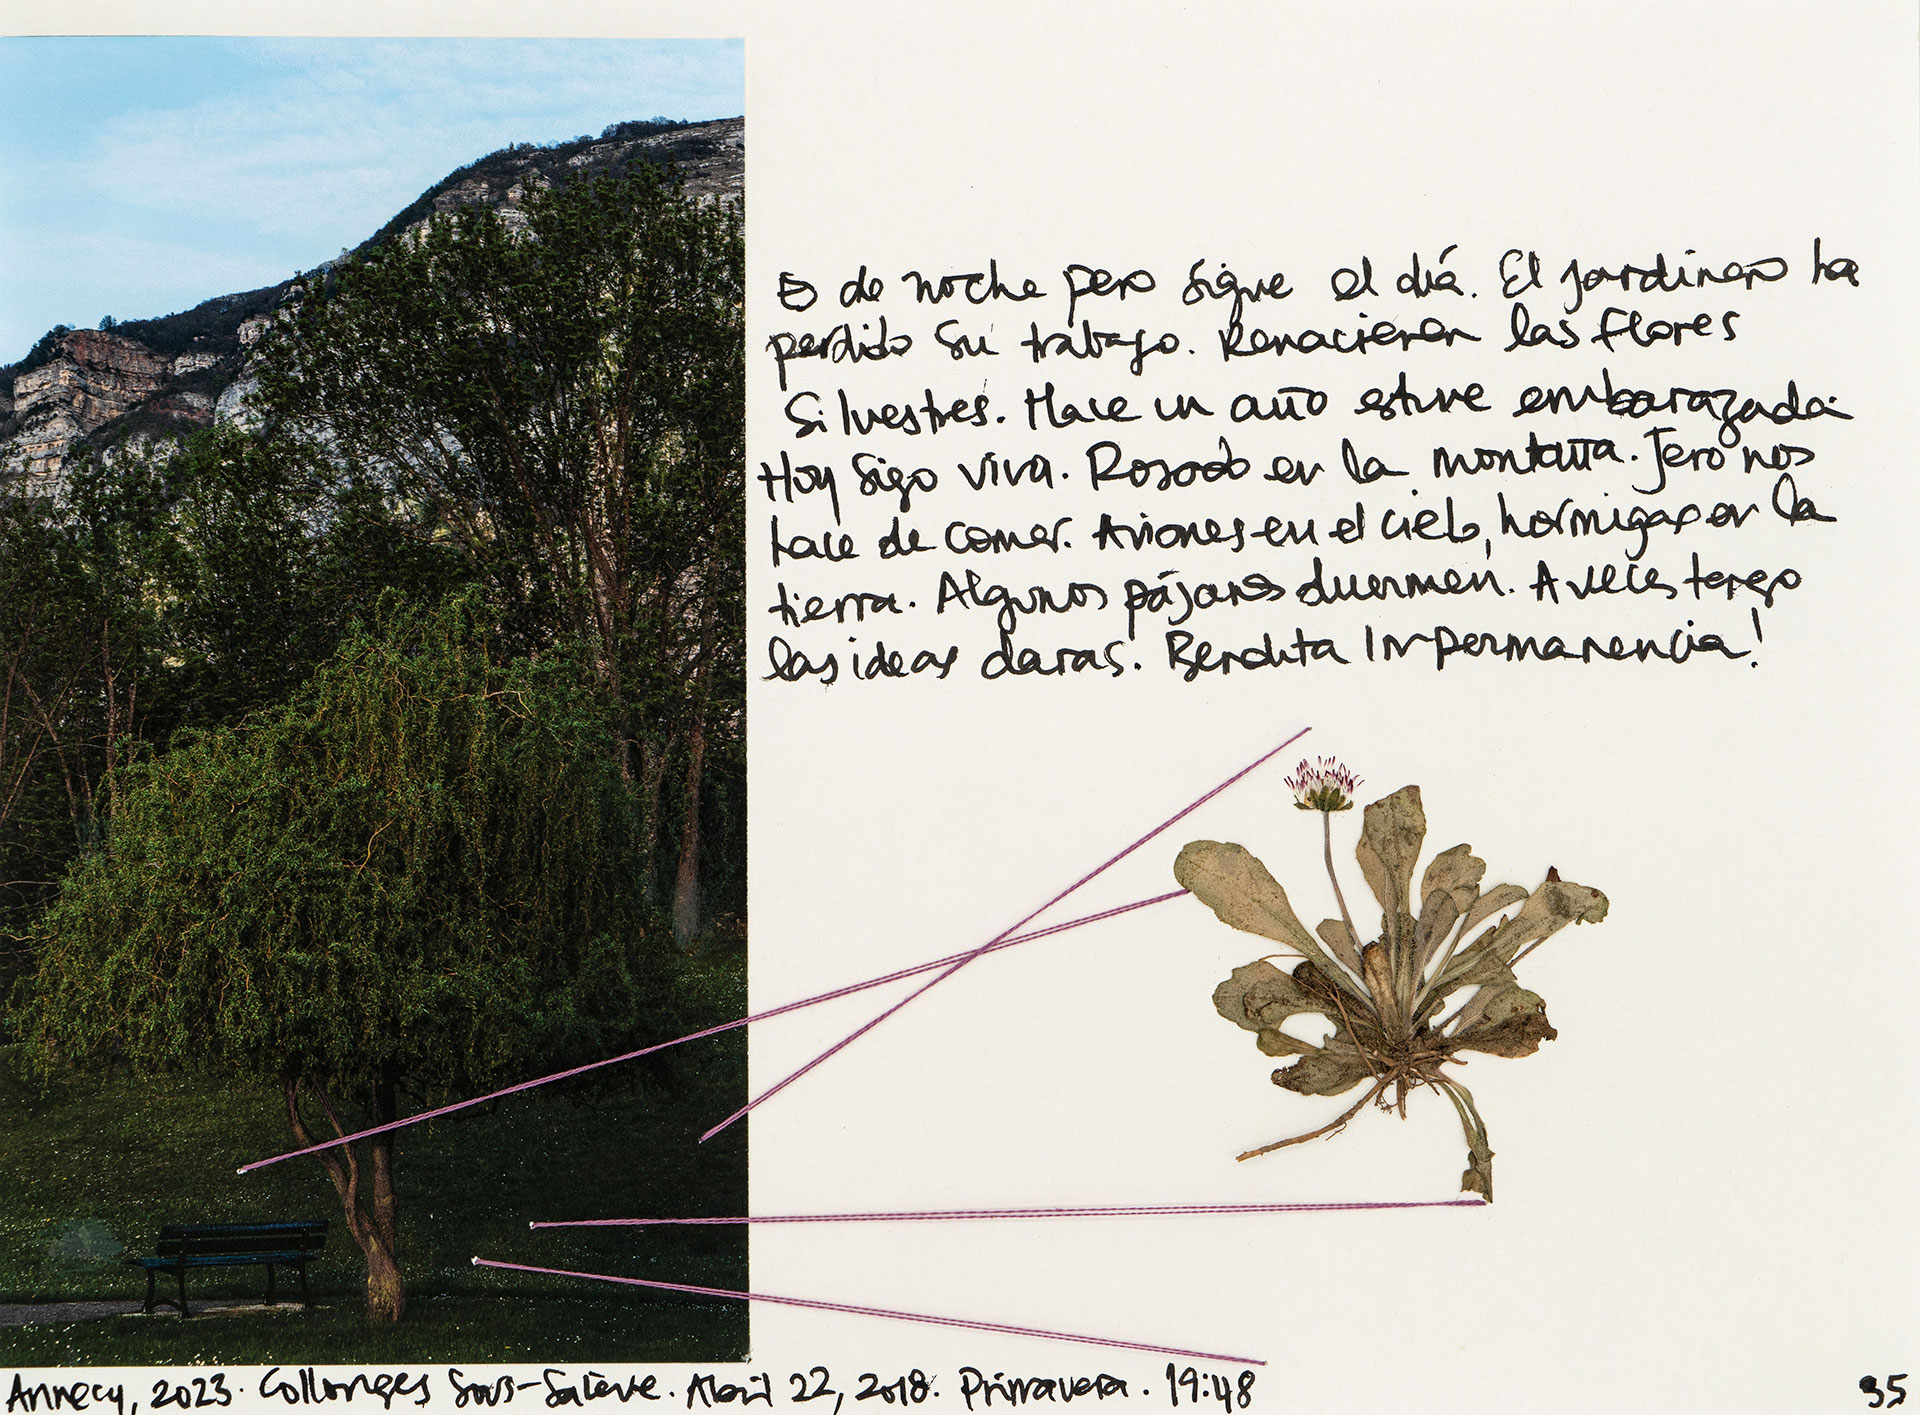 Es de noche pero sigue el día. El jardinero ha
perdido su trabajo. Renacieron las flores
silvestres. Hace un año estuve embarazada.
Hoy sigo viva. Rosado en la montaña. Jero nos
hace de comer. Aviones en el cielo, hormigas en la
tierra. Algunos pájaros duermen. A veces tengo
las ideas claras. Bendita Impermanencia!
Annecy, 2023. Collonges Sous-Salève. Abril 22, 2018. Primavera. 19:48
35